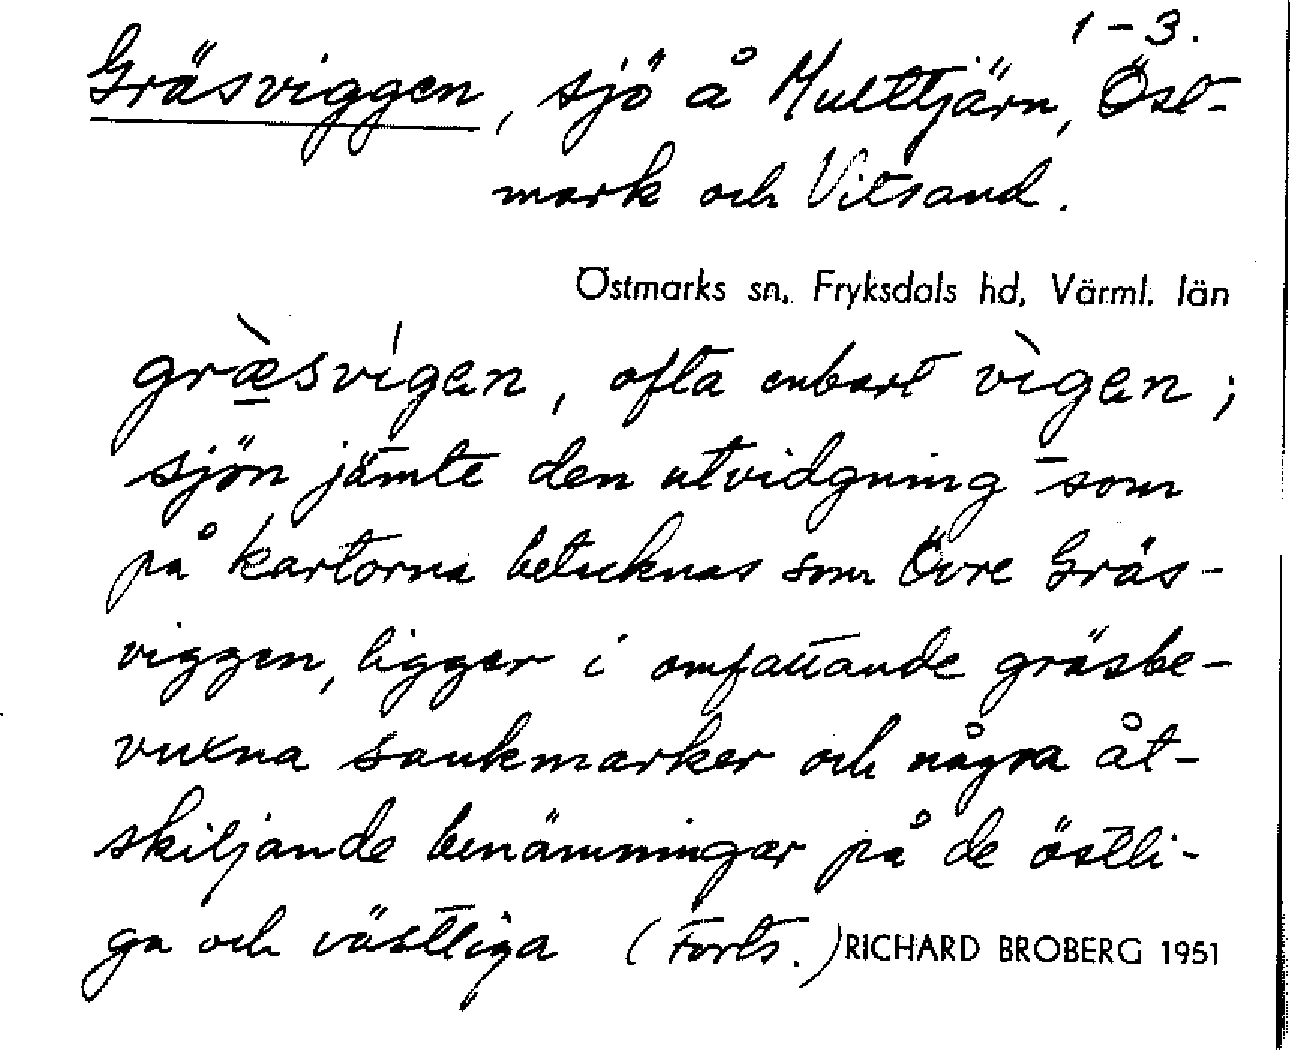 1-3.
Gräsviggen, sjö å Multtjärn, Öst-
mark och Vitsand.
Östmarks sn, Fryksdals hd, Värml. län
græ̀svi̍gən, ofta enbart vìgən;
sjön jämte den utvidgning som
på kartorna betecknas som Övre Gräs-
viggen, ligger i omfattande gräsbe-
vuxna sankmarker och några åt-
skiljande benämningar på de östli-
ga och västliga (Forts.) RICHARD BROBERG 1951